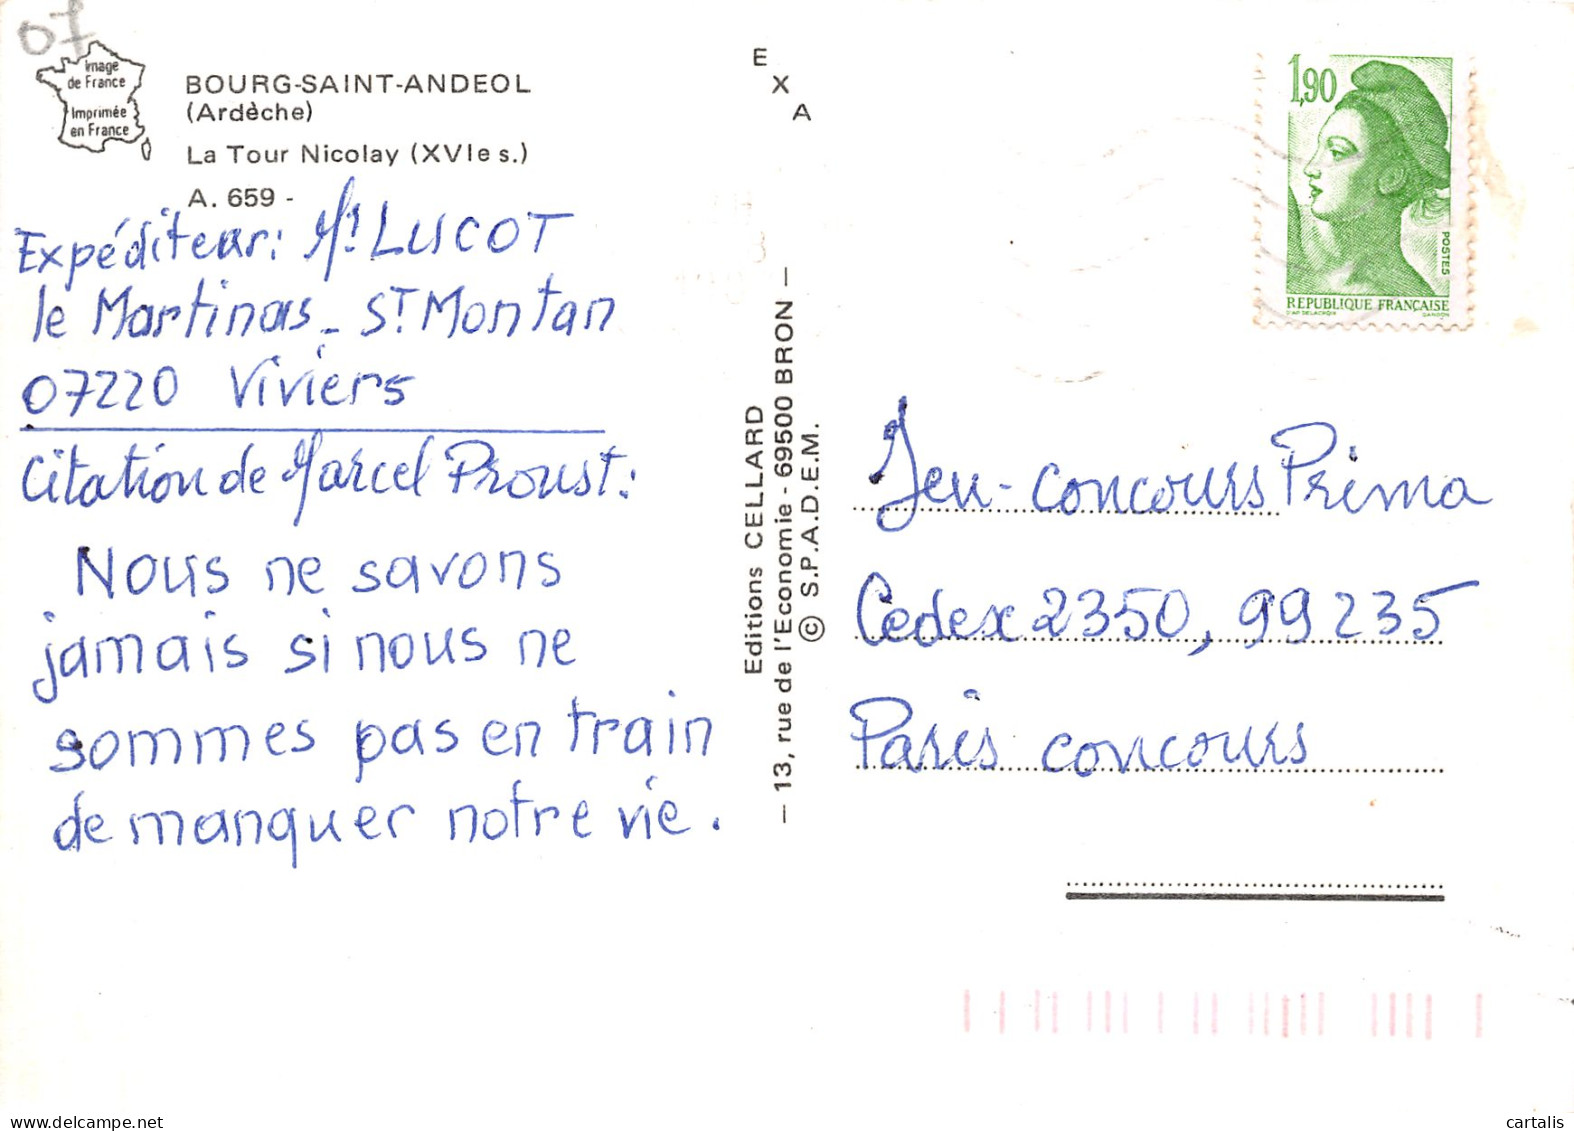 07
Image
de France
Imprimée
en France
BOURG-SAINT-ANDEOL
(Ardèche)
La Tour Nicolay (XVIe s.)
A. 659 -
Expéditeur: Mr LUCOT
le Martinas - St Montan
07220 Viviers
Citation de Marcel Proust:
Nous ne savons
jamais si nous ne
sommes pas en train
de manquer notre vie.
EXA
Editions CELLARD
— 13, rue de l'Economie - 69500 BRON —
© S.P.A.D.E.M.
1,90
POSTES
REPUBLIQUE FRANÇAISE
D'AP. DELACROIX GANDON
Jeu-concours Prima
Cedex 2350, 99235
Paris concours
delcampe.net
cartalis